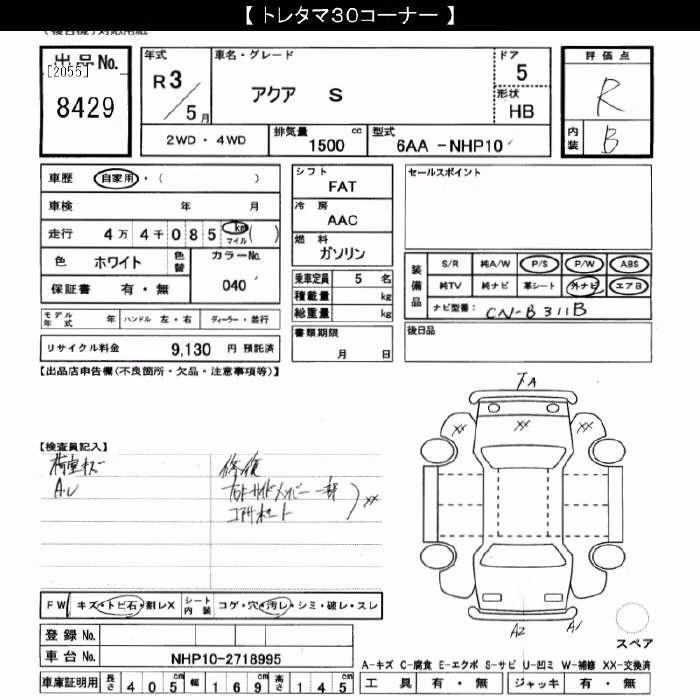 【 トレタマ３０コーナー 】
出品No. [2055]
8429
年式 R3 / 5月
車名・グレード
アクア S
ドア 5
形状 HB
評価点 R
内装 B
2WD ・ 4WD
排気量 1500 cc
型式 6AA -NHP10
車歴 自家用 ・( )
車検 年 月
走行 4万 4千 0 8 5 km マイル ( )
色 ホワイト 色替 カラーNo. 040
保証書 有 ・ 無
モデル年式 年 ハンドル 左・右 ディーラー・並行
リサイクル料金 9,130 円 預託済
シフト FAT
冷房 AAC
燃料 ガソリン
乗車定員 5 名
積載量 kg
総重量 kg
書類期限 月 日
セールスポイント
装備品
S/R 純A/W P/S P/W ABS
純TV 純ナビ 革シート 外ナビ エアB
ナビ型番: CN-B311B
後日品
【出品店申告欄(不良箇所・欠品・注意事項等)】
【検査員記入】
荷室キズ
AU
修復
コアサポート
XX
FW キズ・トビ石・割レX シート内装 コゲ・穴・汚レ・シミ・破レ・スレ
登録 No.
車台 No. NHP10-2718995
車庫証明用 長さ 405 cm 幅 169 cm 高さ 145 cm
A
XX XX XX
A2 A1
スペア
A-キズ C-腐食 E-エクボ S-サビ U-凹ミ W-補修 XX-交換済
工具 有 ・ 無 ジャッキ 有 ・ 無